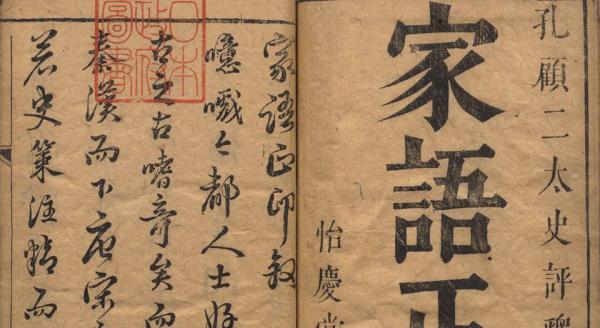 孔顧二太史評
家語正
怡慶堂
家語正印敘
噫嘻今都人士好
古之古嗜奇矣而
秦漢而下唐宋
若史策注精而
日本
圖書